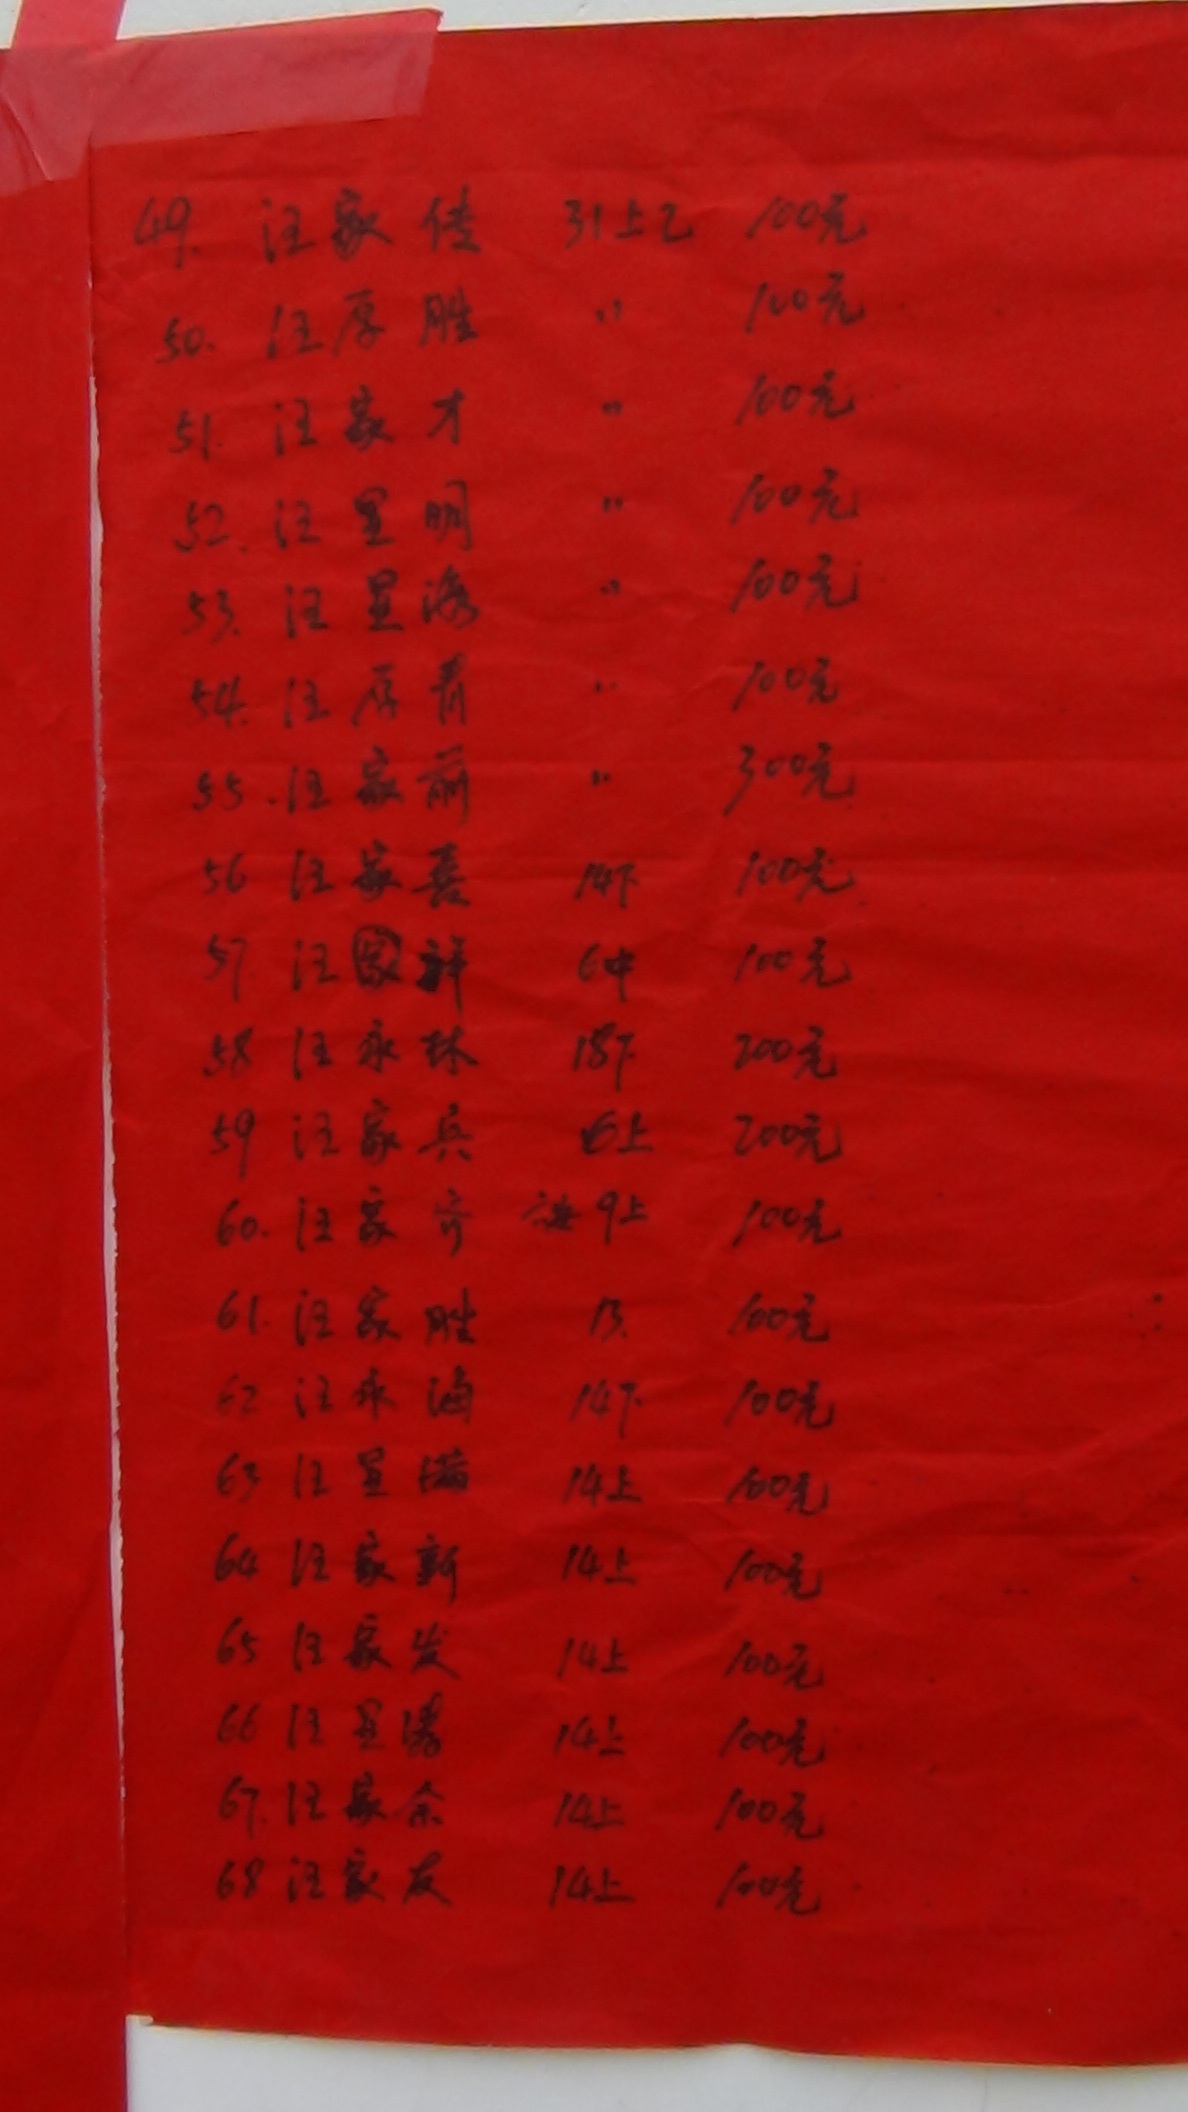 49. 汪家传 31上乙 100元
50. 汪厚胜 〃 100元
51. 汪家才 〃 100元
52. 汪显明 〃 100元
53. 汪显海 〃 100元
54. 汪厚青 〃 100元
55. 汪家前 〃 300元
56 汪家喜 14下 100元
57 汪家祥 6中 100元
58 汪永林 18下 200元
59 汪家兵 6上 200元
60. 汪家齐 9上 100元
61. 汪家胜 13. 100元
62 汪永海 14下 100元
63 汪显满 14上 100元
64 汪家新 14上 100元
65 汪家发 14上 100元
66 汪显 14上 100元
67. 汪家余 14上 100元
68 汪家友 14上 100元